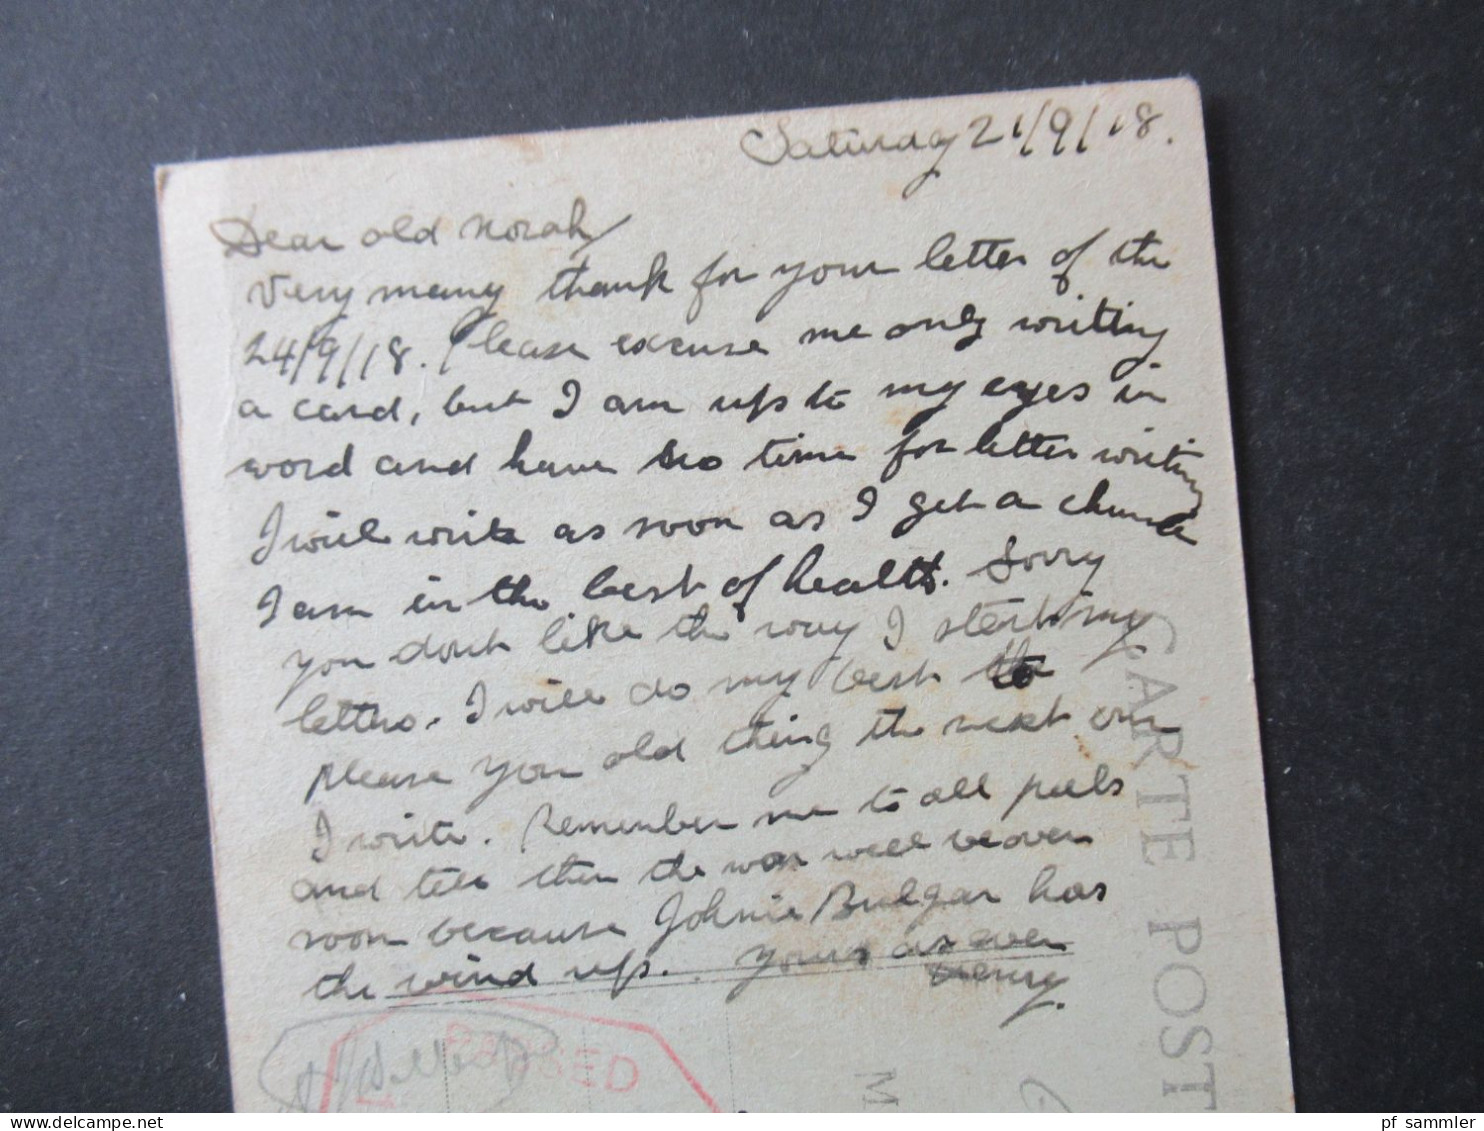 Saturday 21/9/18.
Dear old Norah
Very many thank for your letter of the
24/9/18. Please excuse me only writing
a card, but I am up to my eyes in
word and have no time for letter writing
I will write as soon as I get a chance
I am in the best of health. Sorry
you dont like the way I start my
letters. I will do my best to
please you old thing the next one
I write. Remember me to all pals
and tell them the war will be over
soon because Johnie Bulgar has
the wind up. Yours as ever
Henry.
PASSED
CARTE POST
M
delcampe.net
pf_sammler